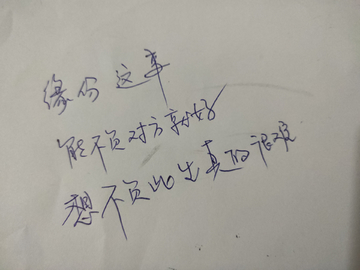 缘份这事
能不负对方就好
想不负此生真的很难